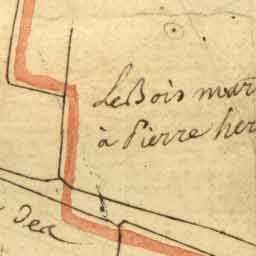 Le Bois mar
à Pierre her